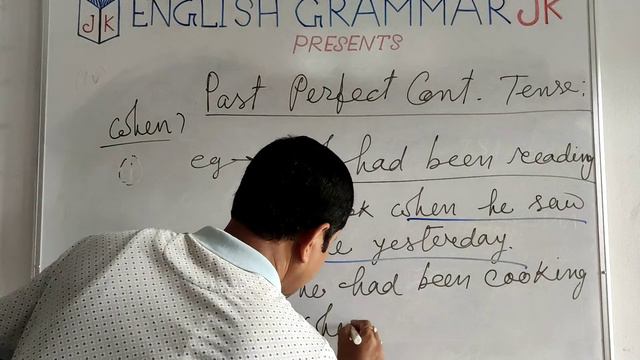 JK ENGLISH GRAMMAR JK
PRESENTS
Past Perfect Cont. Tense:
When?
(i) eg had been reading
when he saw
yesterday.
had been cooking